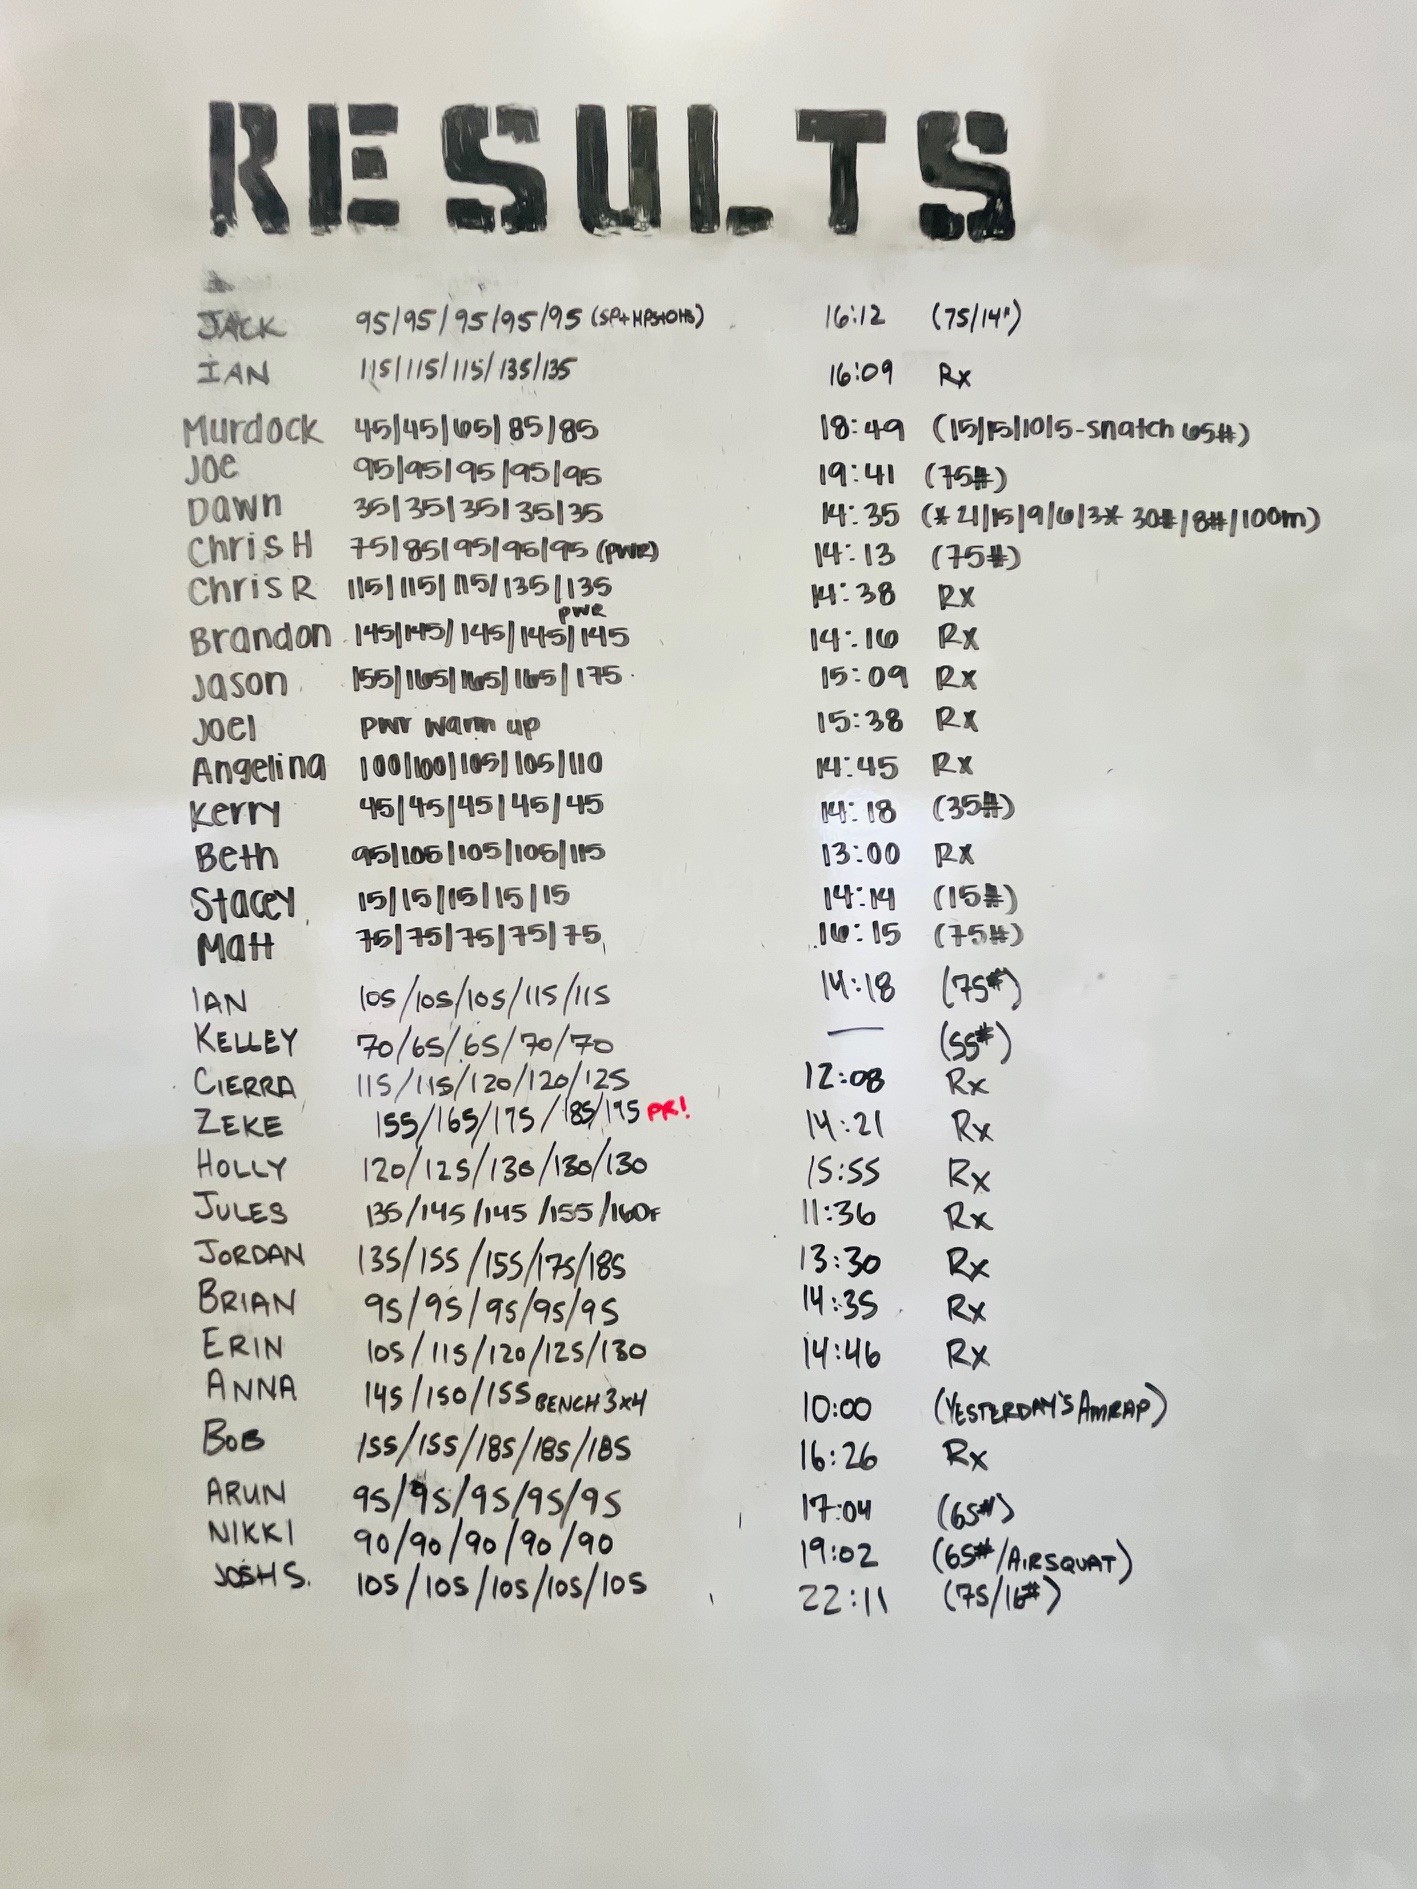 RESULTS
JACK 95/95/95/95/95 (SP+HPS+OHS) 16:12 (75/14")
IAN 115/115/115/135/135 16:09 Rx
Murdock 45/45/65/85/85 18:49 (15/15/10/5-snatch 65#)
Joe 95/95/95/95/95 19:41 (75#)
Dawn 35/35/35/35/35 14:35 (* 21/15/9/6/3* 30#/8#/100m)
Chris H 75/85/95/95/95 (PWR) 14:13 (75#)
Chris R 115/115/115/135/135 14:38 Rx
pwr
Brandon 145/145/145/145/145 14:16 Rx
Jason 155/165/165/165/175 15:09 Rx
Joel pwr warm up 15:38 Rx
Angelina 100/100/105/105/110 14:45 Rx
Kerry 45/45/45/45/45 14:18 (35#)
Beth 95/105/105/105/115 13:00 Rx
Stacey 15/15/15/15/15 14:14 (15#)
Matt 75/75/75/75/75 16:15 (75#)
IAN 105/105/105/115/115 14:18 (75#)
KELLEY 70/65/65/70/70 — (55#)
CIERRA 115/115/120/120/125 12:08 Rx
ZEKE 155/165/175/185/195 PR! 14:21 Rx
HOLLY 120/125/130/130/130 15:55 Rx
JULES 135/145/145/155/160F 11:36 Rx
JORDAN 135/155/155/175/185 13:30 Rx
BRIAN 95/95/95/95/95 14:35 Rx
ERIN 105/115/120/125/130 14:46 Rx
ANNA 145/150/155 BENCH 3x4 10:00 (YESTERDAY'S AMRAP)
BOB 155/155/185/185/185 16:26 Rx
ARUN 95/95/95/95/95 17:04 (65#)
NIKKI 90/90/90/90/90 19:02 (65#/AIRSQUAT)
JOSH S. 105/105/105/105/105 22:11 (75/16#)